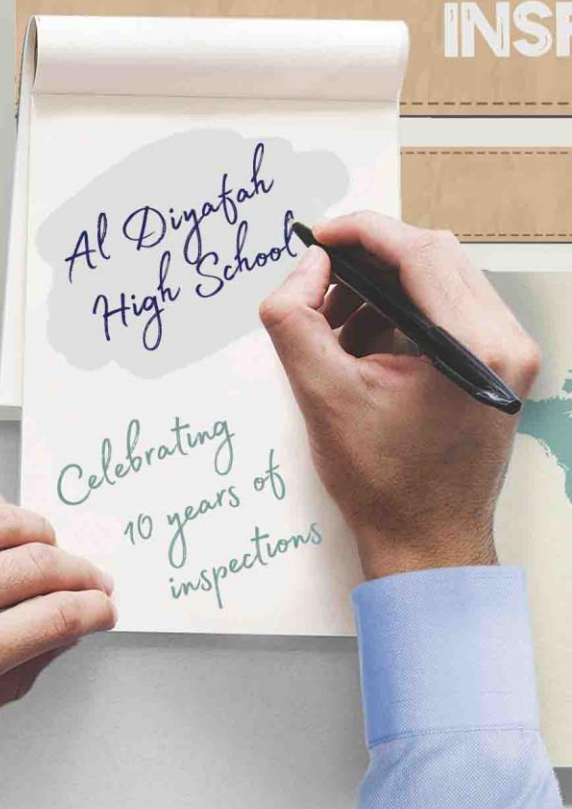 INSP
Al Diyafah
High School
Celebrating
10 years of
inspections